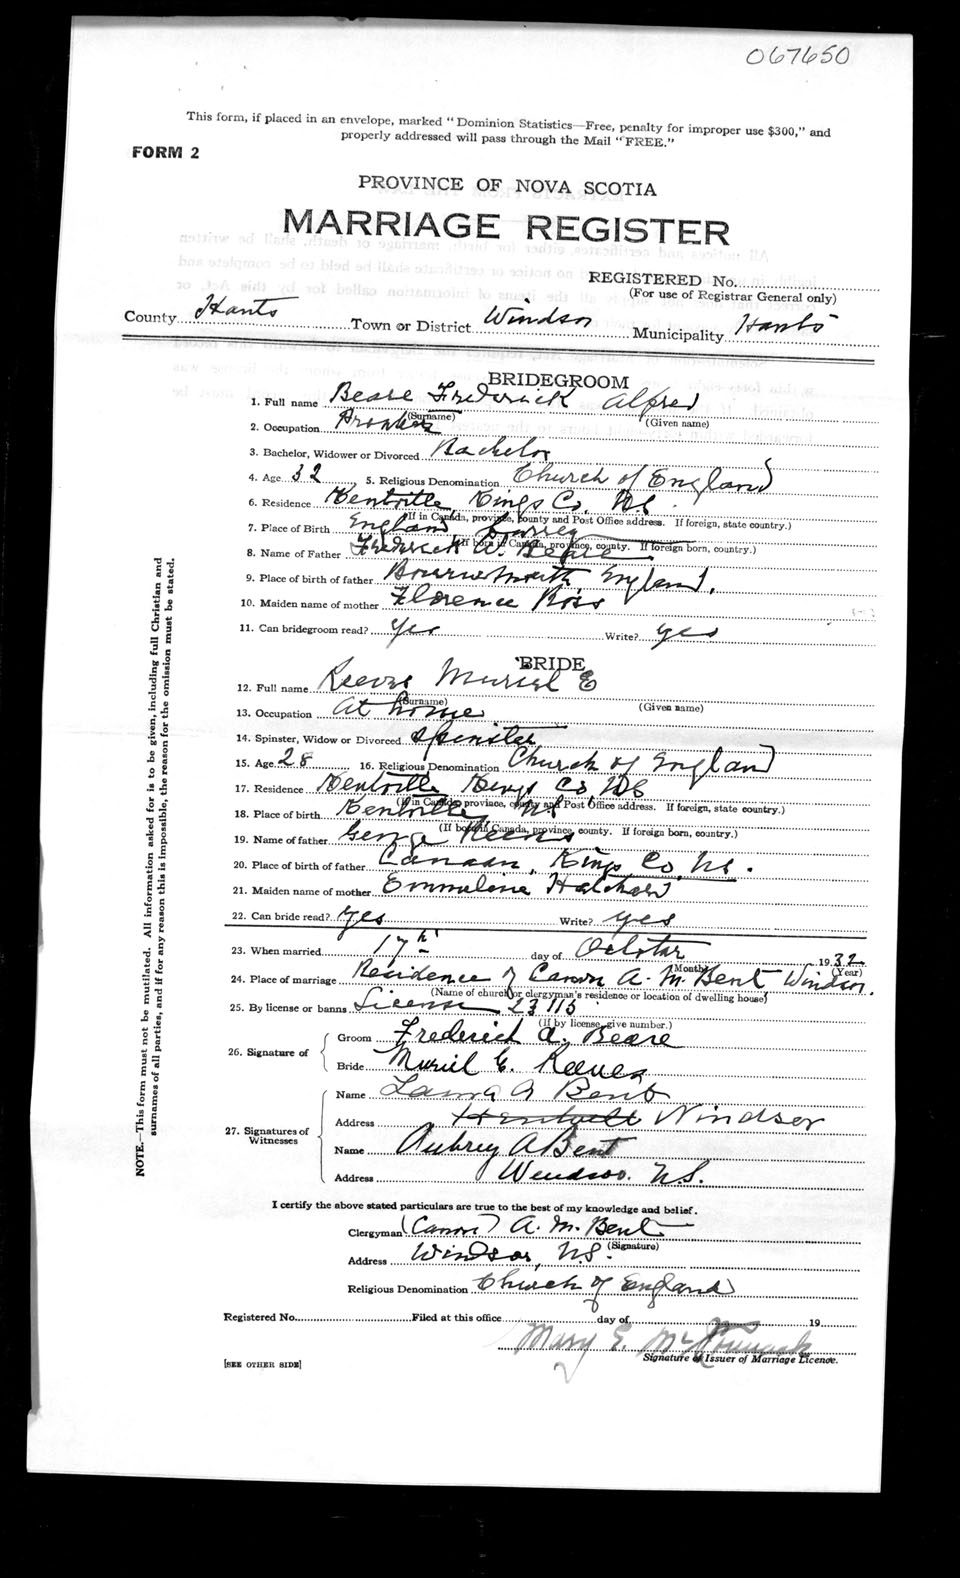 067650
This form, if placed in an envelope, marked "Dominion Statistics—Free, penalty for improper use $300," and
properly addressed will pass through the Mail "FREE."
FORM 2
PROVINCE OF NOVA SCOTIA
MARRIAGE REGISTER
REGISTERED No.
(For use of Registrar General only)
County Hants Town or District Windsor Municipality Hants
BRIDEGROOM
1. Full name Beare Frederick Alfred
(Surname) (Given name)
2. Occupation
3. Bachelor, Widower or Divorced Bachelor
4. Age 32 5. Religious Denomination Church of England
6. Residence Kentville Kings Co. NS.
(If in Canada, province, county and Post Office address. If foreign, state country.)
7. Place of Birth England
(If born in Canada, province, county. If foreign born, country.)
8. Name of Father Frederick W. Beare
9. Place of birth of father Bournemouth, England.
10. Maiden name of mother Florence Ross
11. Can bridegroom read? Yes Write? yes
BRIDE
12. Full name Reeves Muriel E
(Surname) (Given name)
13. Occupation At home
14. Spinster, Widow or Divorced Spinster
15. Age 28 16. Religious Denomination Church of England
17. Residence Kentville Kings Co, NS
(If in Canada, province, county and Post Office address. If foreign, state country.)
18. Place of birth Kentville NS
(If born in Canada, province, county. If foreign born, country.)
19. Name of father George Reeves
20. Place of birth of father Canaan, Kings Co, NS.
21. Maiden name of mother Emmaline
22. Can bride read? Yes Write? yes
23. When married 17th day of October 1932
(Month) (Year)
24. Place of marriage Residence of Canon A. M. Bent, Windsor.
(Name of church or clergyman's residence or location of dwelling house)
25. By license or banns License 23115
(If by license, give number.)
26. Signature of Groom Frederick A. Beare
Bride Muriel E. Reeves
27. Signatures of Witnesses
Name Laura A Bent
Address Windsor
Name Aubrey A Bent
Address Windsor. N.S.
I certify the above stated particulars are true to the best of my knowledge and belief.
Clergyman (Canon) A. M. Bent
(Signature)
Address Windsor, N.S.
Religious Denomination Church of England
Registered No. Filed at this office day of 19
Mary E.
Signature of Issuer of Marriage Licence.
[SEE OTHER SIDE]
NOTE.—This form must not be mutilated. All information asked for is to be given, including full Christian and
surnames of all parties, and if for any reason this is impossible, the reason for the omission must be stated.